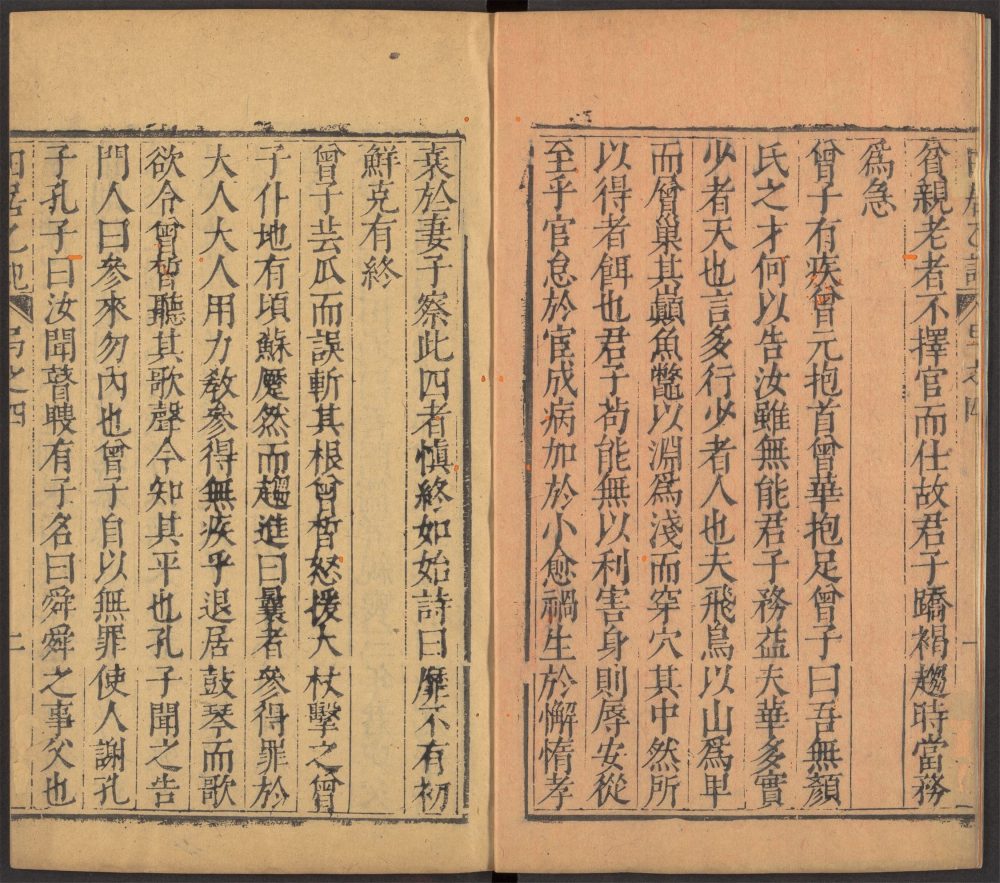 貧親老者不擇官而仕故君子蹻褐趨時當務
爲急
曾子有疾曾元抱首曾華抱足曾子曰吾無顏
氏之才何以告汝雖無能君子務益夫華多實
少者天也言多行少者人也夫飛鳥以山爲卑
而層巢其巔魚鼈以淵爲淺而穿穴其中然所
以得者餌也君子茍能無以利害身則辱安從
至乎官怠於宦成病加於小愈禍生於懈惰孝
衰於妻子察此四者愼終如始詩曰靡不有初
鮮克有終
曾子芸瓜而誤斬其根曾晳怒援大杖擊之曾
子仆地有頃蘇蹷然而趨進曰曩者參得罪於
大人大人用力敎參得無疾乎退居鼓琴而歌
欲令曾晳聽其歌聲令知其平也孔子聞之告
門人曰參來勿內也曾子自以無罪使人謝孔
子孔子曰汝聞瞽瞍有子名曰舜舜之事父也